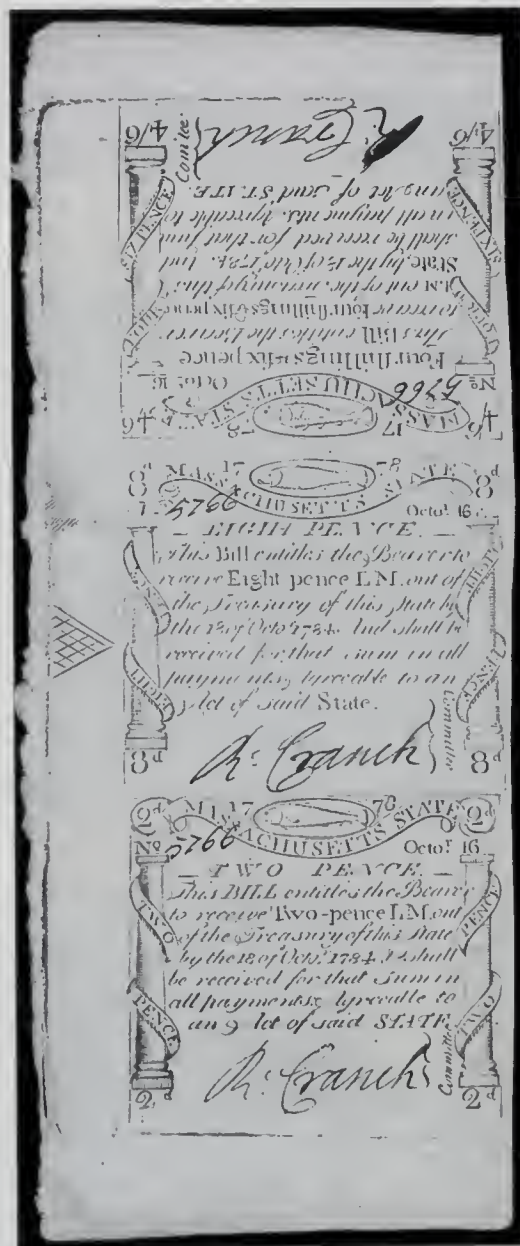 4/6 4/6
MASSACHUSETTS STATE
17 78
No 5766 Octor 16
Four shillings & six pence
This Bill entitles the Bearer
to receive Four shillings & Six pence
LM. out of the Treasury of this
State, by the 18 of Octr. 1784. And
shall be received for that sum
in all payments, agreeable to
an Act of said STATE.
R: Cranch
Comitee
FOUR SHILLINGS
SIX PENCE
SIX PENCE
4/6 4/6
8d MASSACHUSETTS STATE 8d
17 78
No 5766 Octor 16
EIGHT PENCE.
This Bill entitles the Bearer to
receive Eight pence LM. out of
the Treasury of this State by
the 18 of Octr 1784. And shall be
received for that sum in all
payments, agreeable to an
Act of said State.
R: Cranch
Committee
EIGHT PENCE
EIGHT PENCE
8d 8d
2d MASSACHUSETTS STATE 2d
17 78
No 5766 Octor 16
TWO PENCE.
This BILL entitles the Bearer
to receive Two-pence LM. out
of the Treasury of this State
by the 18 of Octr. 1784. & shall
be received for that Sum in
all payments, agreeable to
an Act of said STATE
R: Cranch
Committee
TWO PENCE
TWO PENCE
2d 2d